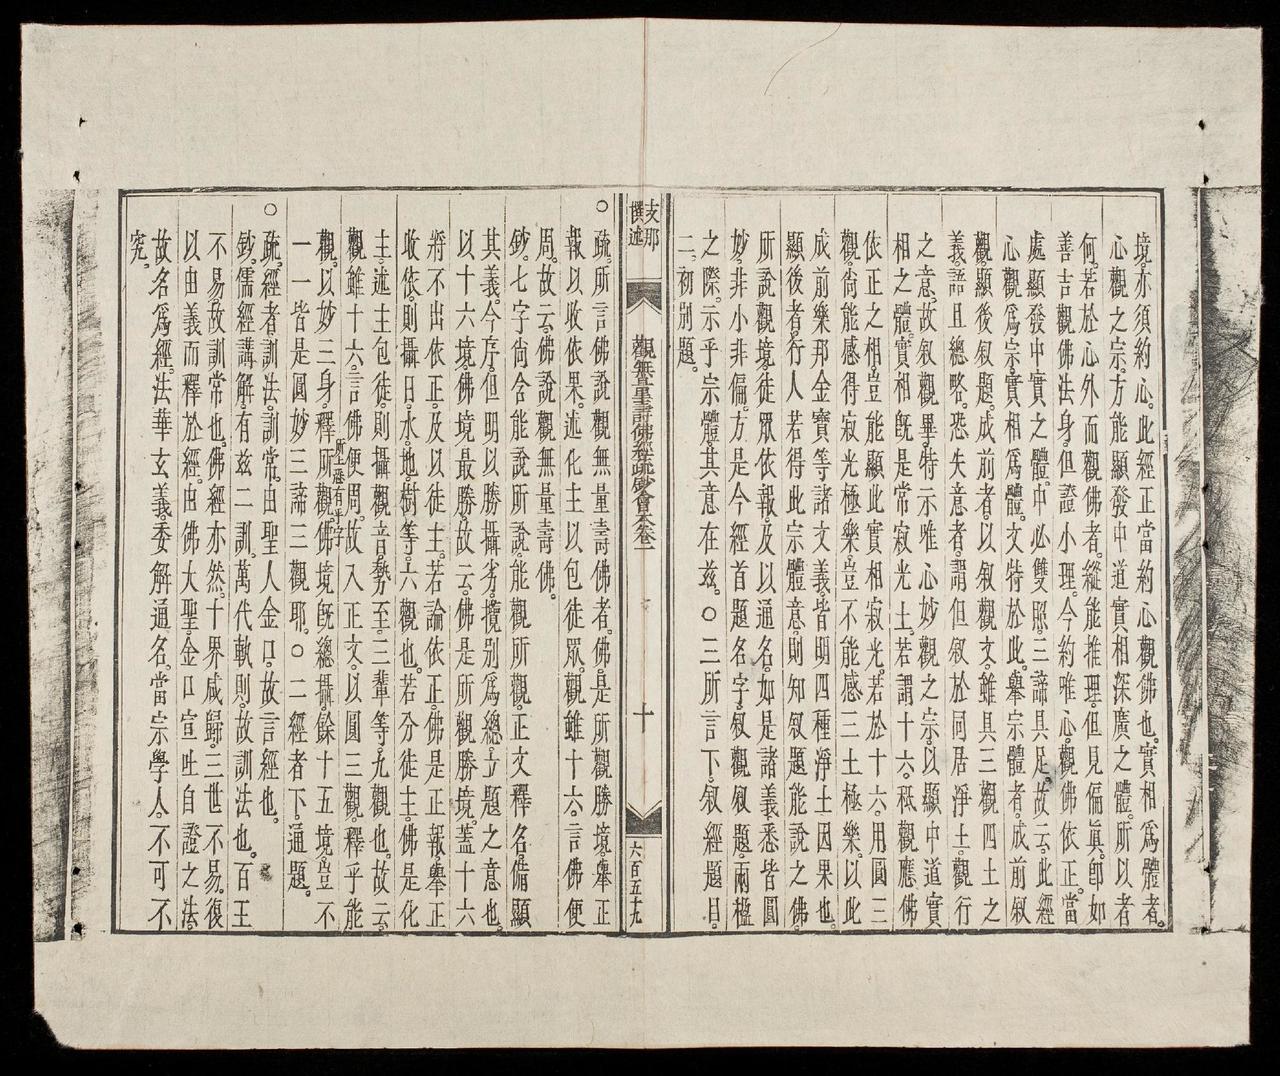 境亦須約心。此經正當約心觀佛也。實相爲體者。
心觀之宗。方能顯發中道實相深廣之體。所以者
何。若於心外而觀佛者。縱能推理。但見偏眞。卽如
善吉觀佛法身。但證小理。今約唯心。觀佛依正。當
處顯發中實之體。中必雙照。三諦具足。故云。此經
心觀爲宗。實相爲體。文特於此。舉宗體者。成前叙
觀顯後叙題。成前者。以叙觀文。雖具三觀四土之
義。語且總略。恐失意者。謂但叙於同居淨土。觀行
之意。故叙觀畢。特示唯心妙觀之宗。以顯中道實
相之體。實相旣是常寂光土。若謂十六。秖觀應佛
依正之相。豈能顯此實相寂光。若於十六。用圓三
觀。尙能感得寂光極樂。豈不能感三土極樂。以此
成前樂邦金寶等諸文義。皆明四種淨土因果也。
顯後者。行人若得此宗體意。則知叙題能說之佛。
所說觀境。徒眾依報。及以通名。如是諸義悉皆圓
妙。非小非偏。方是今經首題名字。叙觀叙題。兩楹
之際。示乎宗體。其意在兹。○三所言下。叙經題目。
二。初別題。
支那
撰述
觀無量壽佛經疏鈔會本卷一
十
六百五十九
○疏。所言佛說觀無量壽佛者。佛是所觀勝境。舉正
報以收依果。述化主以包徒眾。觀雖十六。言佛便
周。故云。佛說觀無量壽佛。
鈔。七字尙含能說所說。能觀所觀。正文釋名。備顯
其義。今序。但明以勝攝劣。攬別爲總。立題之意也。
以十六境。佛境最勝。故云。佛是所觀勝境。蓋十六
將不出依正。及以徒主。若論依正。佛是正報。舉正
收依。則攝日。水。地。樹等。六觀也。若分徒主。佛是化
主。述主包徒。則攝觀音。勢至。三輩等。九觀也。故云。
觀雖十六。言佛便周。故入正文。以圓三觀。釋乎能
觀。以妙三身釋所觀佛境旣總攝餘十五境。豈不
一一皆是圓妙三諦三觀耶。○二經者下。通題。
○疏。經者。訓法。訓常。由聖人金口。故言經也。
鈔。儒經講解。有兹二訓。萬代軌則。故訓法也。百王
不易。故訓常也。佛經亦然。十界咸歸。三世不易。復
以由義而釋於經。由佛大聖。金口宣吐自證之法。
故名爲經。法華玄義。委解通名。當宗學人。不可不
究。